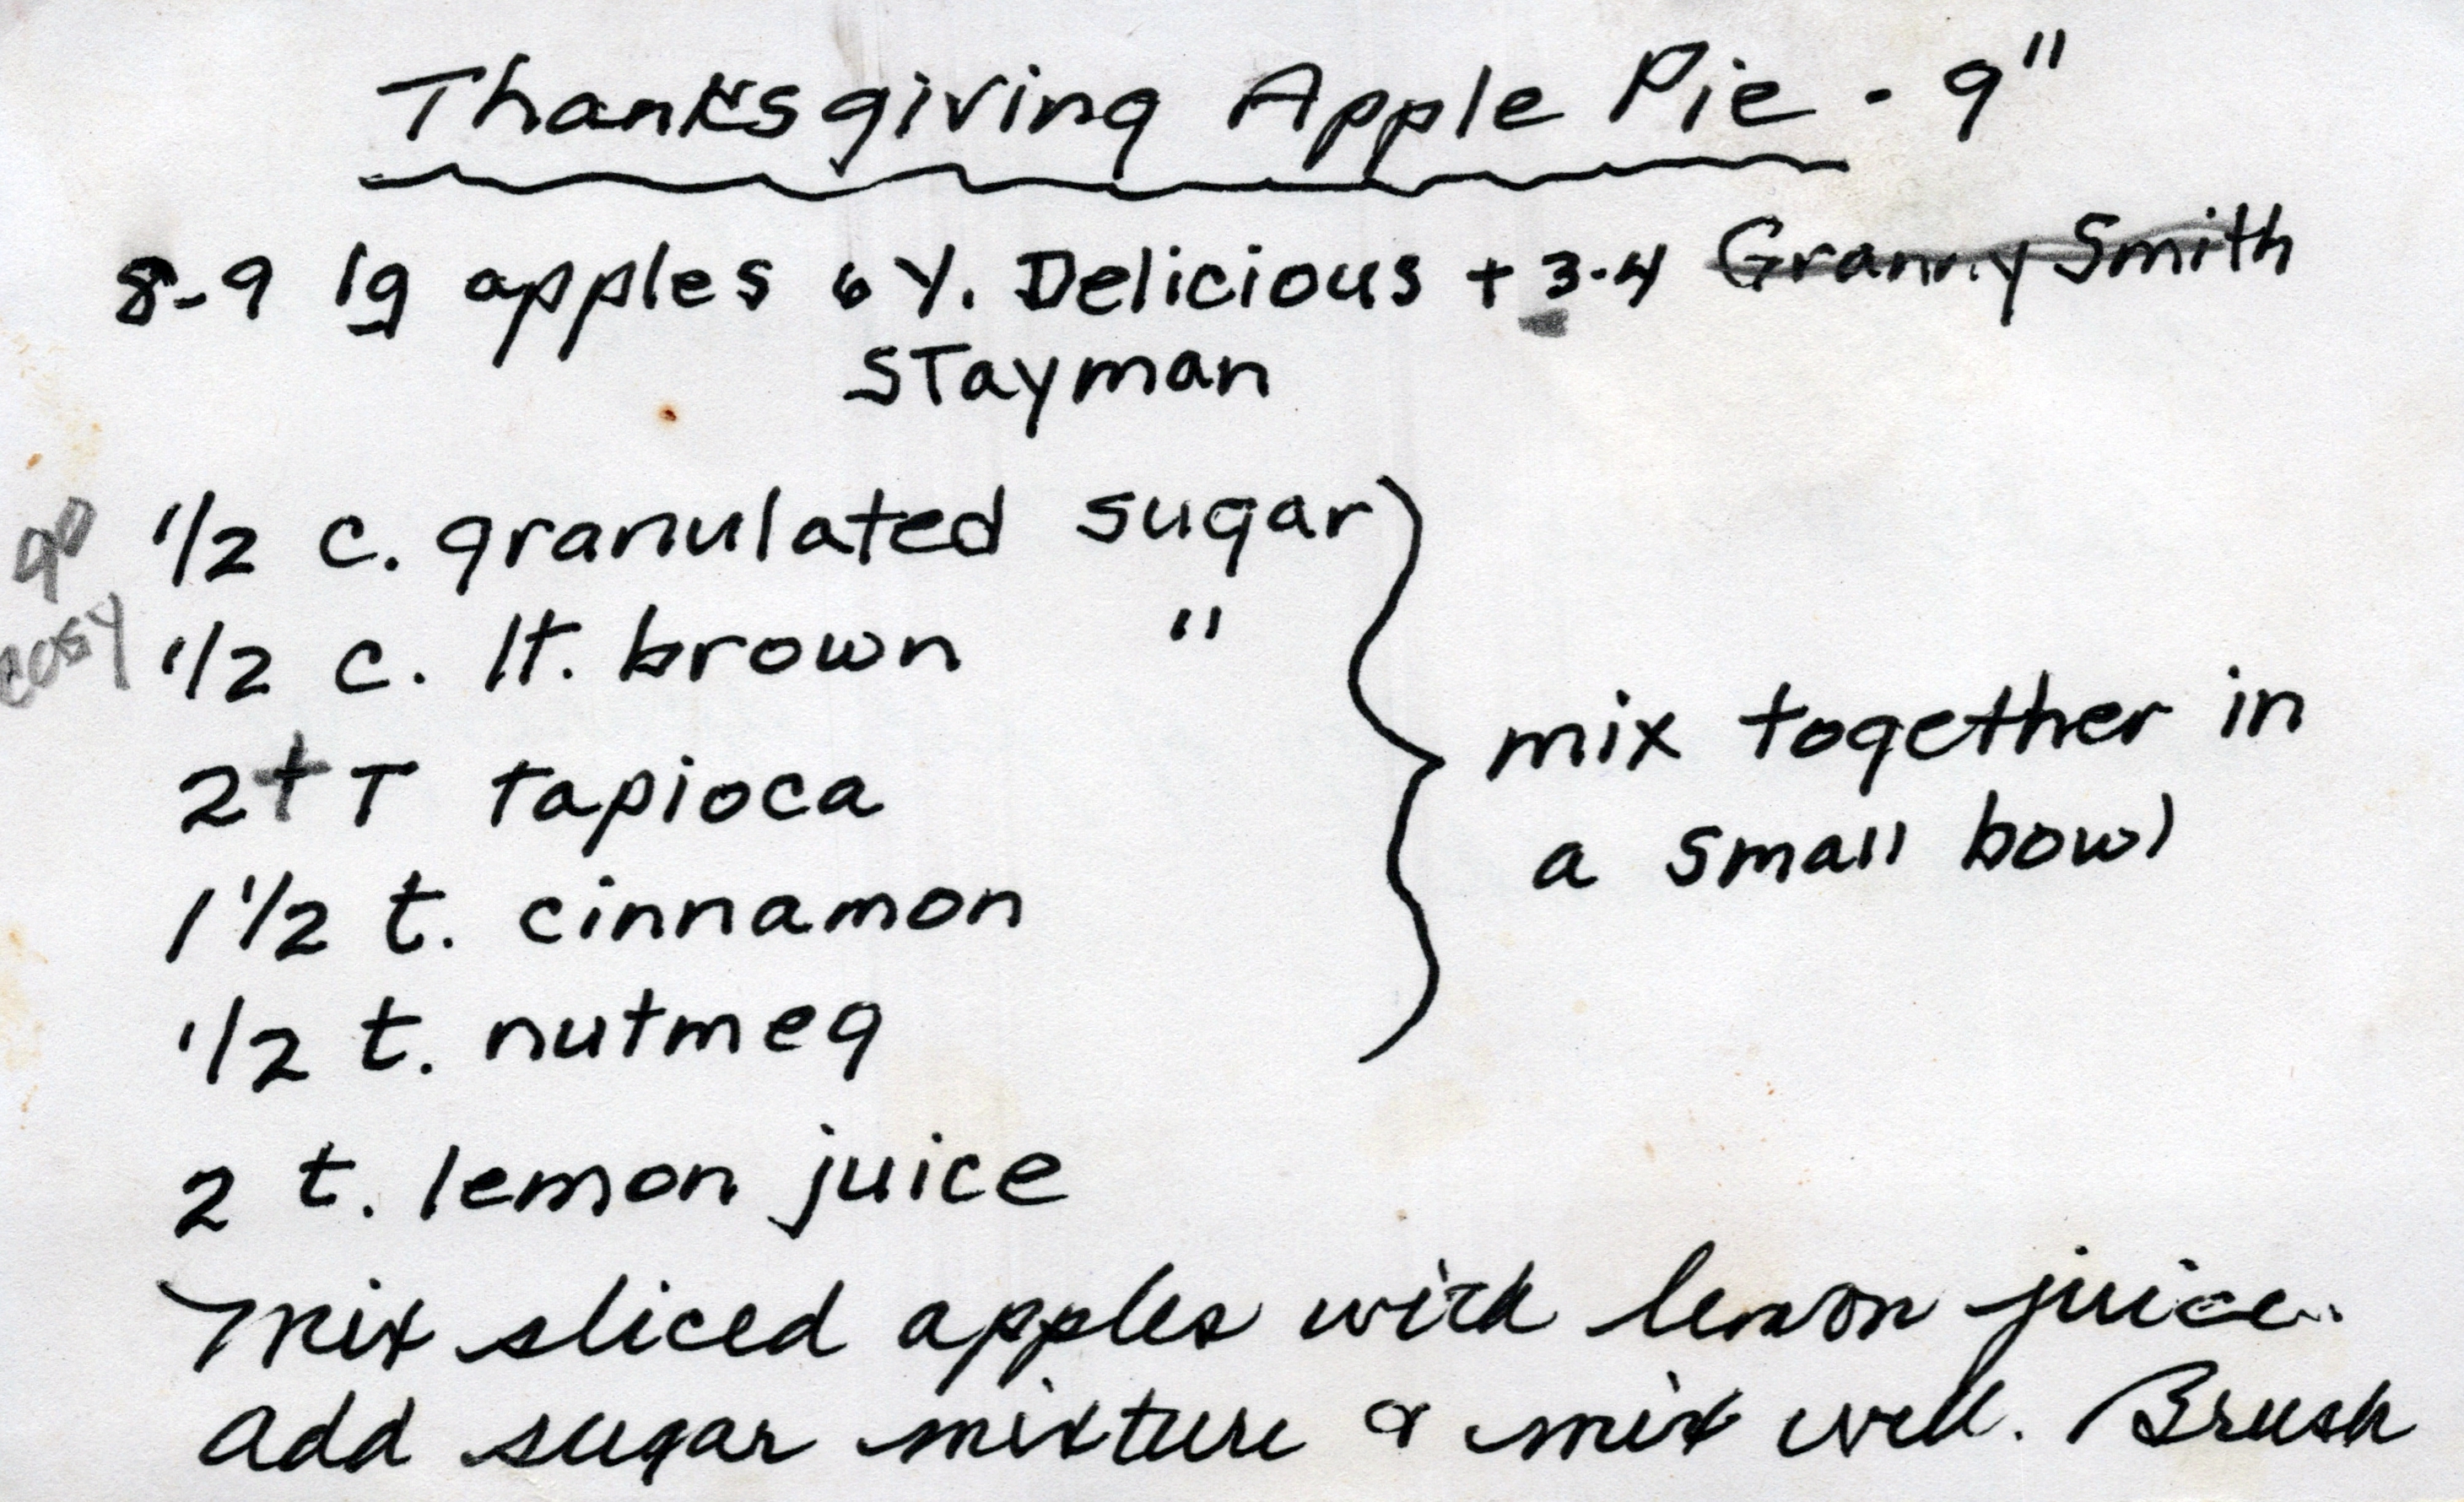 Thanksgiving Apple Pie - 9"
8-9 lg apples 6 Y. Delicious + 3-4 Granny Smith
STayman
go
easy
1/2 c. granulated sugar
1/2 c. lt. brown "
2+ T Tapioca
1 1/2 t. cinnamon
1/2 t. nutmeg
mix together in
a small bowl
2 t. lemon juice
Mix sliced apples with lemon juice.
Add sugar mixture & mix well. Brush